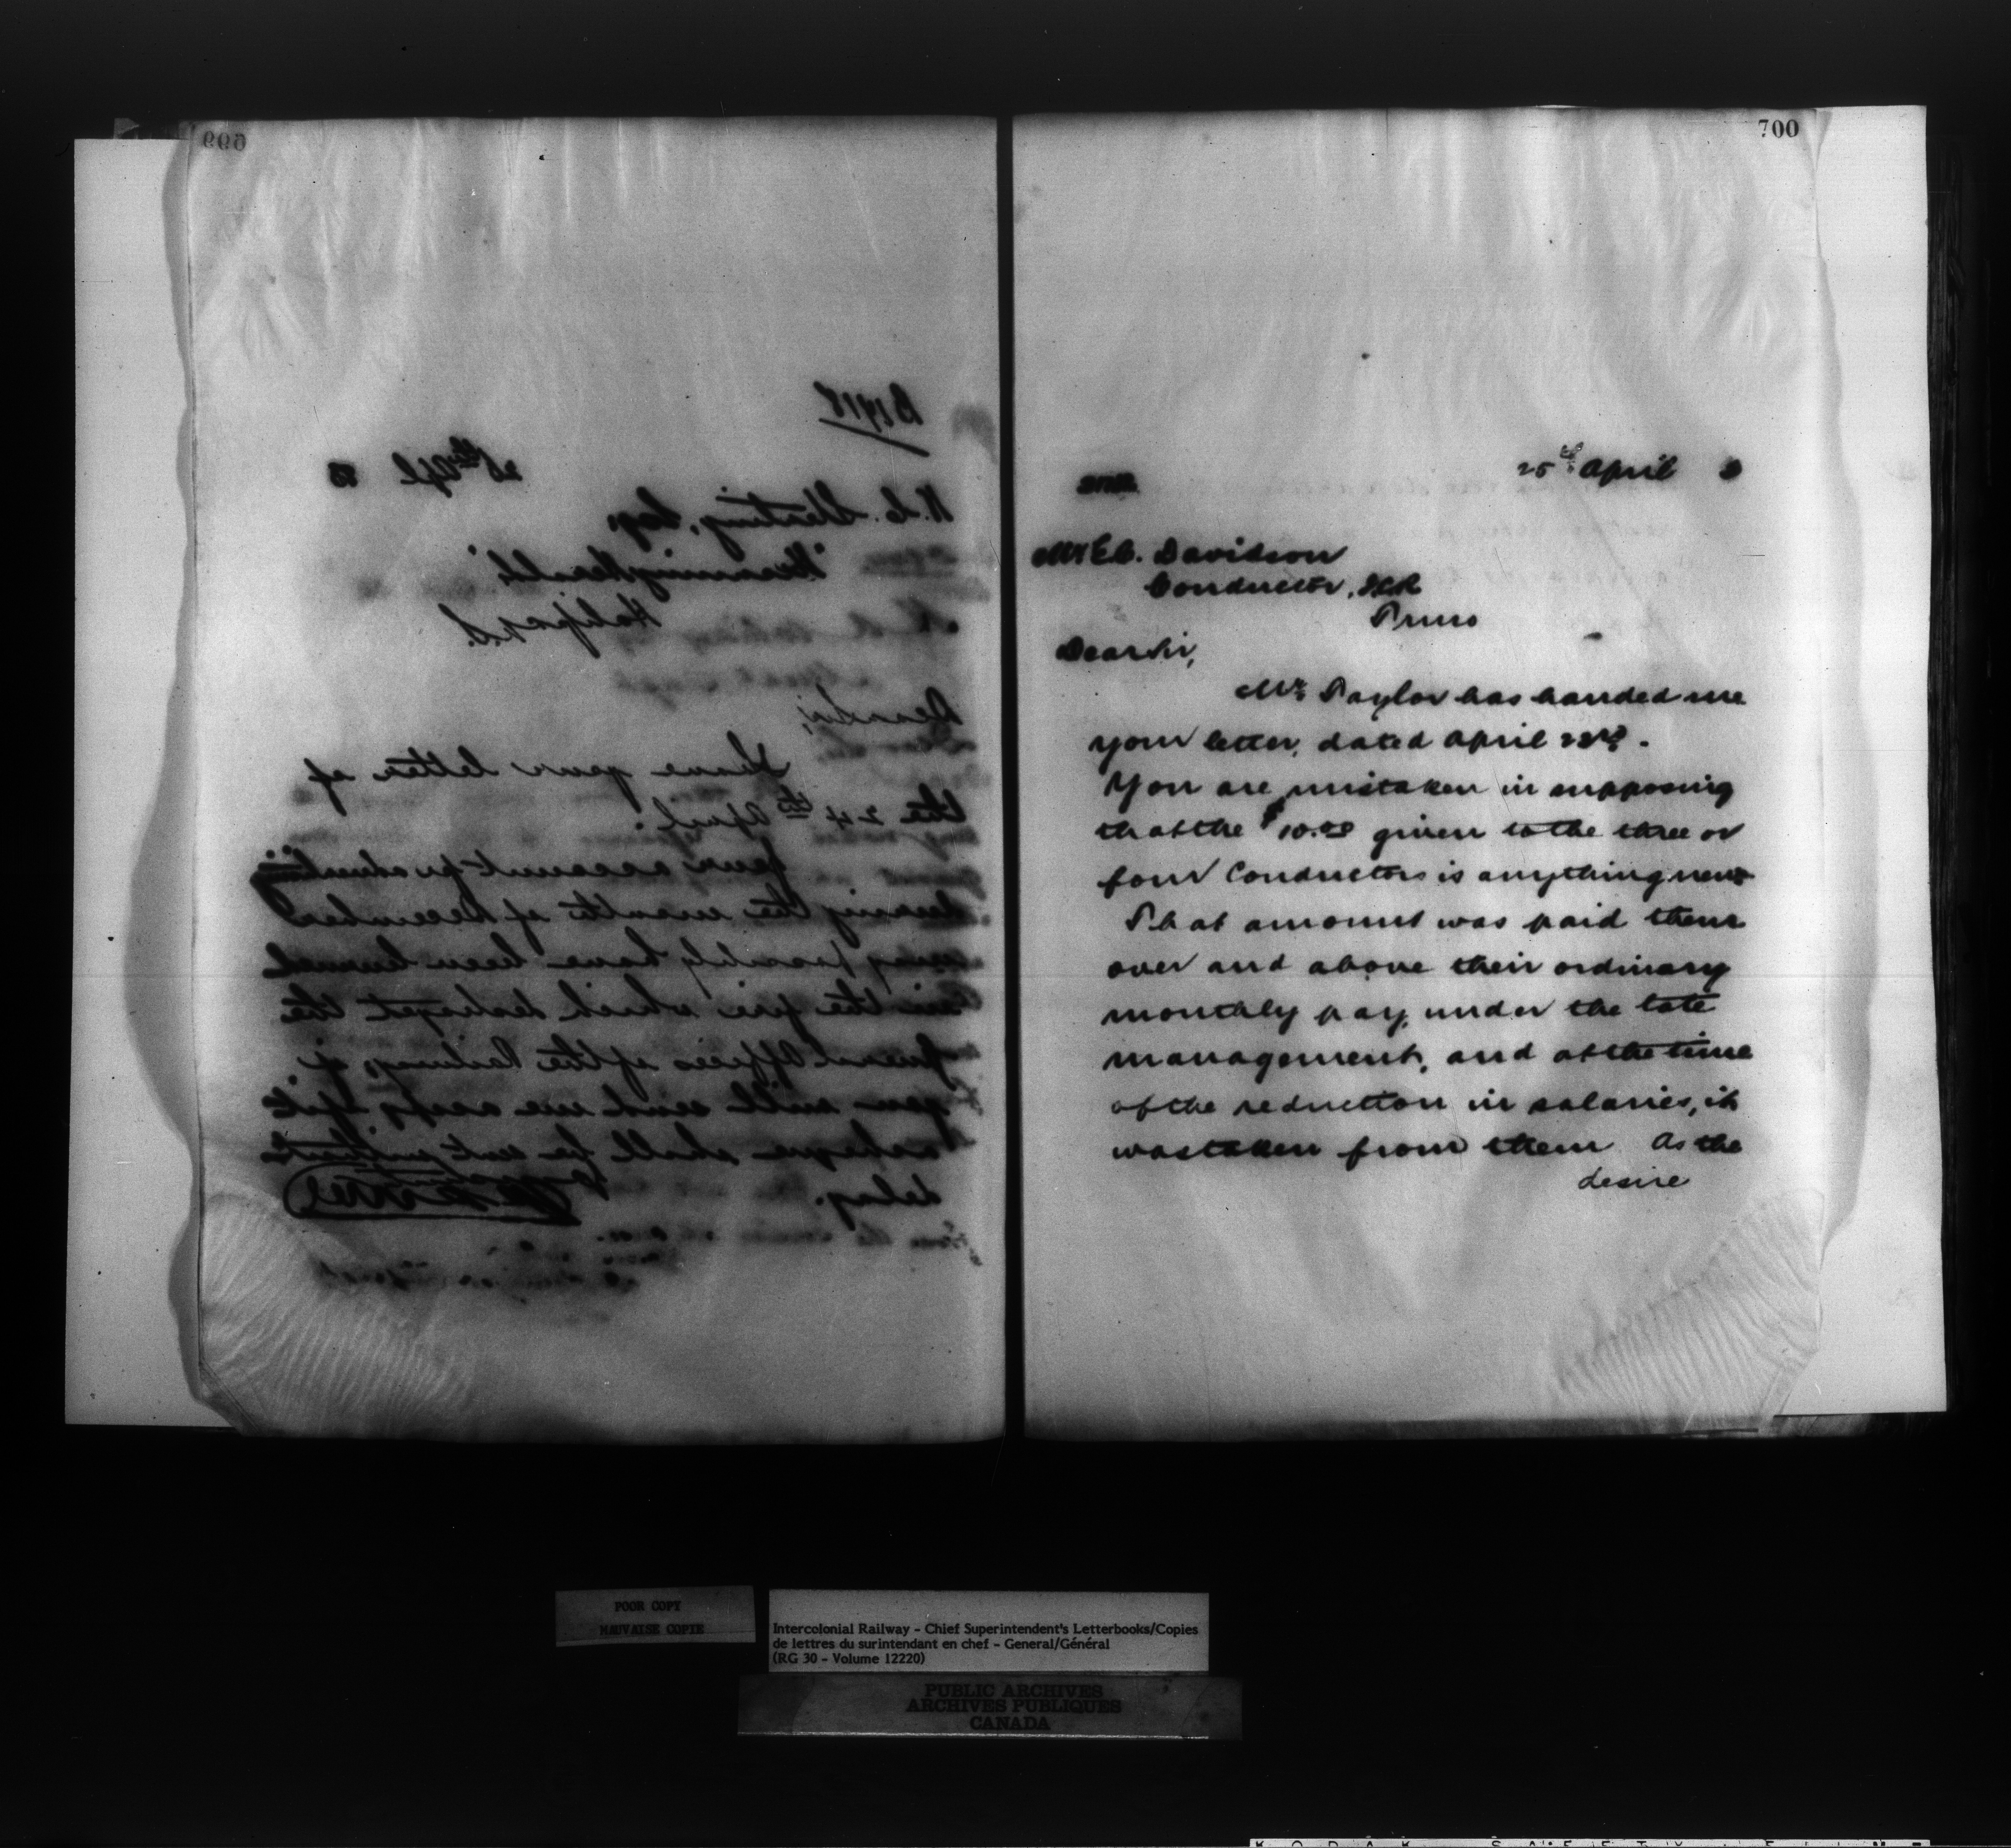 699
B1918
25th Apl 83
Esq,
"Morning Herald"
Halifax N.S.
Dear Sir,
I have your letter of
the 24th April.
Your account for advertising
during the month of December
may possibly have been burned
in the fire which destroyed the
General Offices of the Railway, if
you will send me a copy of it
a cheque shall be sent without
delay.
700
25th April 3
Mr E.C. Davidson
Conductor, ICR
Truro
Dear Sir,
Mr Taylor has handed me
your letter, dated April 23rd.
You are mistaken in supposing
that the $10.00 given to the three or
four Conductors is anything new
That amount was paid them
over and above their ordinary
monthly pay, under the late
management, and at the time
of the reduction in salaries, it
was taken from them As the
desire
POOR COPY
MAUVAISE COPIE
Intercolonial Railway - Chief Superintendent's Letterbooks/Copies
de lettres du surintendant en chef - General/Général
(RG 30 - Volume 12220)
PUBLIC ARCHIVES
ARCHIVES PUBLIQUES
CANADA